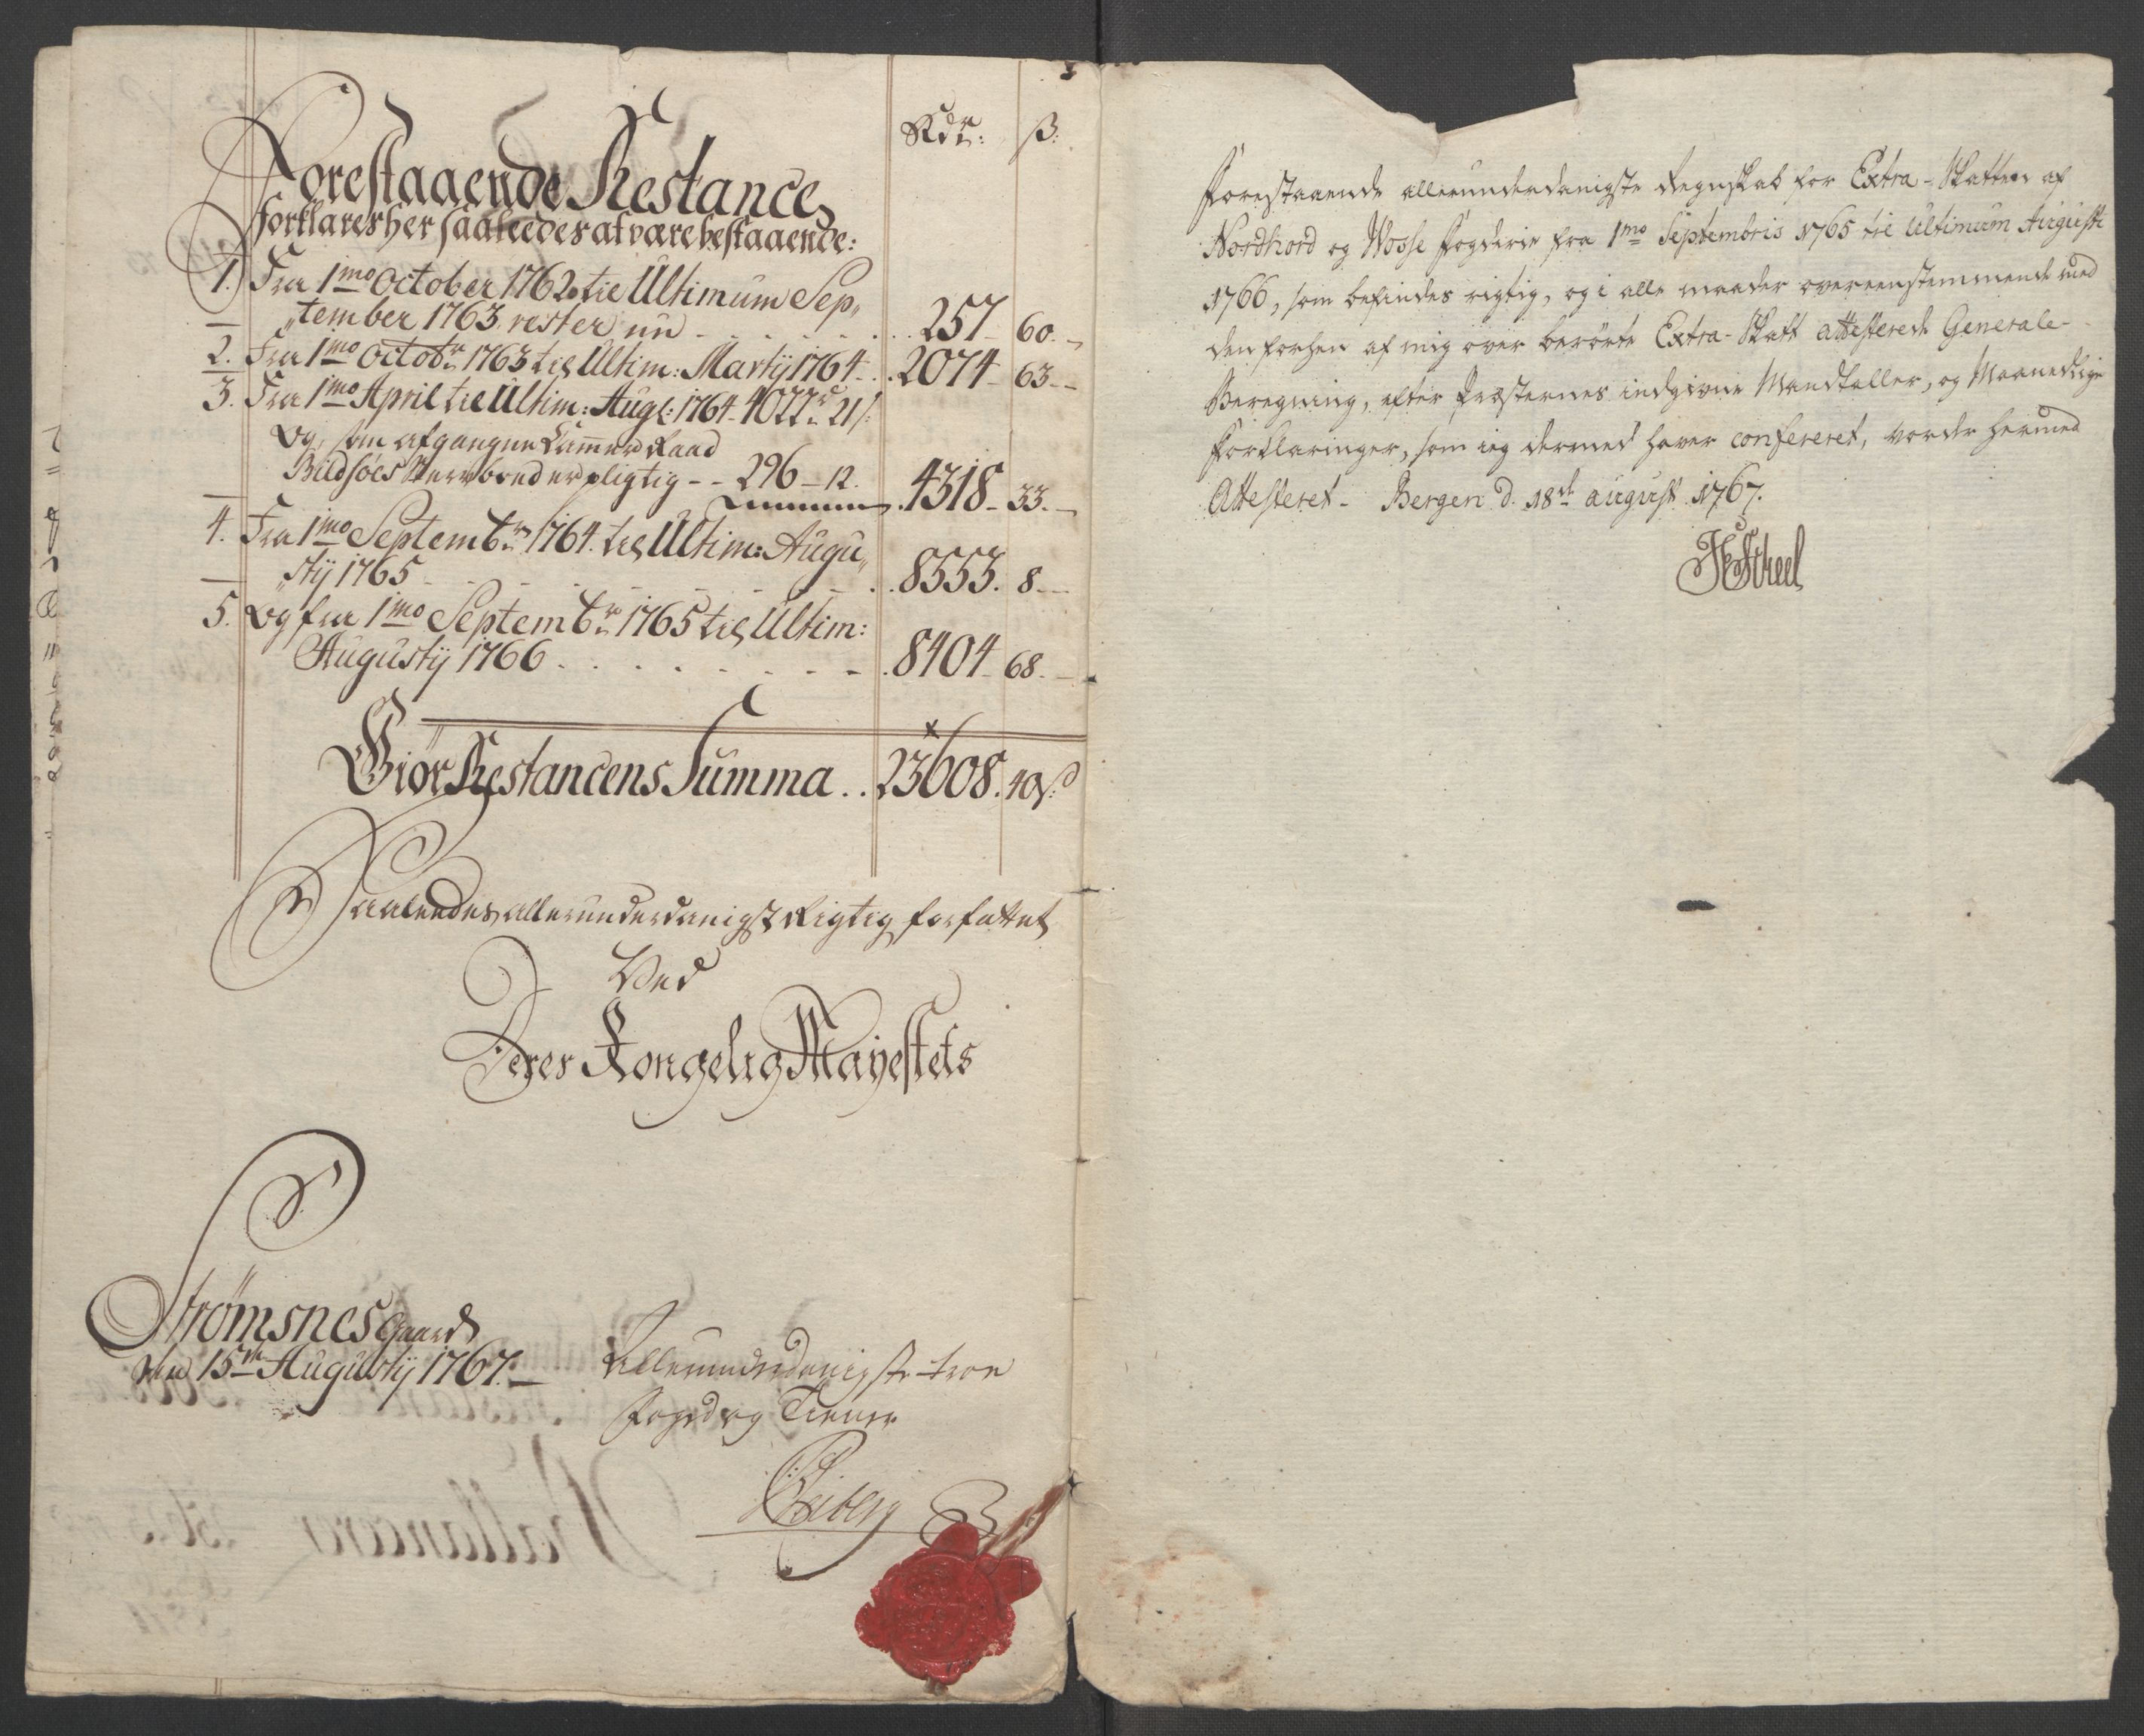 Rdr: ß:
Forestaaende Restance
forklares her saaleedes at være bestaaende:
1. Fra 1mo October 1762 til Ultimum Sep„
„tember 1763 rester nu - - - - 257 - 60. -
2. Fra 1mo Octobr 1763 til Ultim: Martÿ 1764 - . 2074 - 63. -
3. Fra 1mo April til Ultim: Aug: 1764 - 4022 rd 21 ß:
Og, som afgangne Cammer Raad
Bildsöes Sterboe er pligtig - - 296 - 12.
4318 - 33. -
4. Fra 1mo Septembr 1764 til Ultim: Augu„
„stÿ 1765 - - - - - - 8553. 8. -
5. Og fra 1mo Septembr 1765 til Ultim:
Augustÿ 1766 . . . . . - - - . 8404 - 68. -
Giör Restancens Summa . . 23608. 40 ß:
Saaleedes allerunderdanigst Rigtig forfattet
Ved
Deres Kongelig Mayestets
Strømsnes Gaard
den 15de Augustÿ 1767. -
Allerunderdanigste troe
foged og Tiener
Heiberg
Forestaaende allerunderdanigste Regnskab for Extra-Skatten af
Nordhord og Wosse Fogderie fra 1mo Septembris 1765 til Ultimum Augusti
1766, som befindes rigtig, og i alle maader overeenstemmende med
den forhen af mig over berörte Extra-Skatt attesterede Generale-
Beregning, efter Præsternes indgivne Mandtaller, og Maanedlige
Forklaringer, som ieg dermed haver confereret, vorder hermed
Attesteret - Bergen d. 18de august 1767.